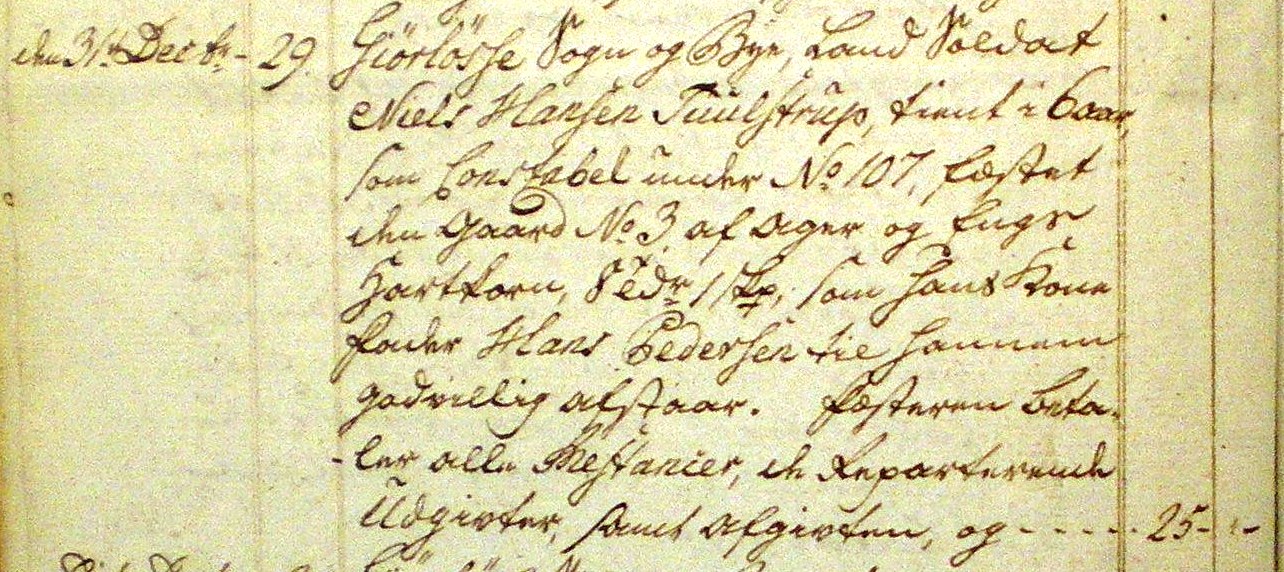 den 31t Decbr. - 29. Giörlösse Sogn og Bye, Land Soldat
Niels Hansen Tuulstrup, tient i 6 aar,
som Constabel under No 107, fæstet
den Gaard No 3, af Ager og Engs
Hartkorn, 8 Tdr 1 Skp, som hans Kone
Fader Hans Pedersen til hannem
godvillig afstaar. Fæsteren beta-
-ler alle Restancer, de Reparterende
Udgivter, samt Afgivten, og - - - - - 25 -